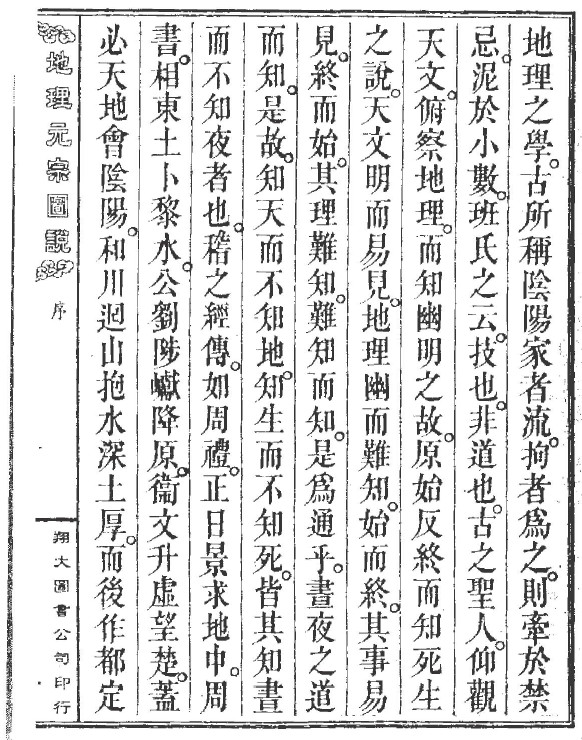 地理之學。古所稱陰陽家者流。拘者爲之。則牽於禁
忌。泥於小數。班氏之云。技也。非道也。古之聖人。仰觀
天文。俯察地理。而知幽明之故。原始反終。而知死生
之說。天文明而易見。地理幽而難知。始而終。其事易
見。終而始。其理難知。難知而知。是爲通乎。晝夜之道
而知。是故。知天而不知地。知生而不知死。皆其知晝
而不知夜者也。稽之經傳。如周禮。正日景求地中。周
書。相東土卜黎水。公劉陟巘降原。衞文升虛望楚。蓋
必天地會陰陽。和川迴山抱水深土厚。而後作都定
地理元宗圖說
序
翔大圖書公司印行